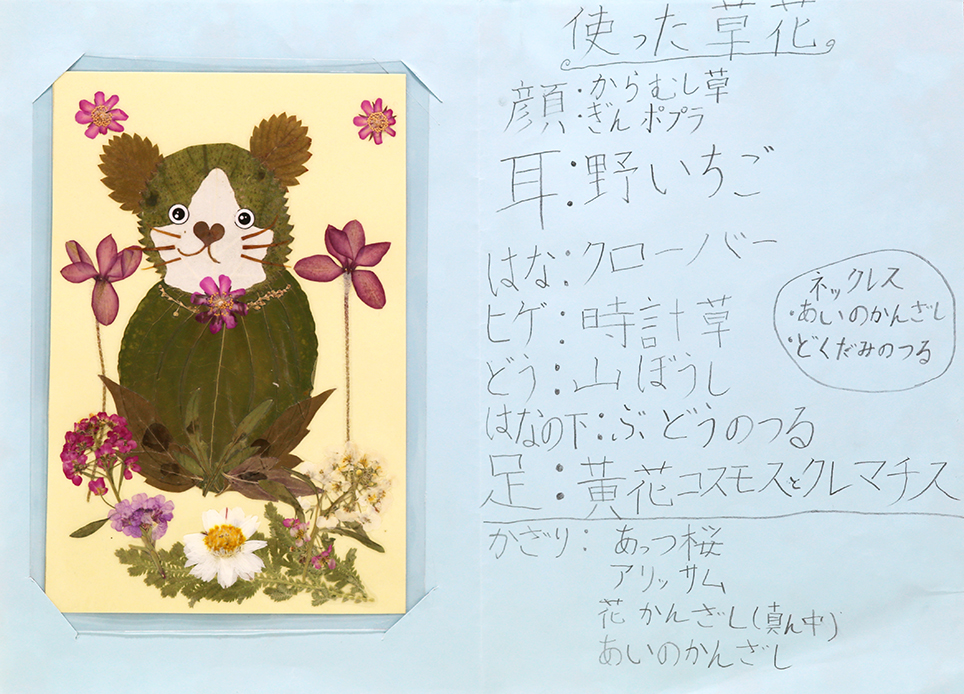 使った草花。
顔：・からむし草
・ぎんポプラ
耳：野いちご
はな：クローバー
ヒゲ：時計草
どう：山ぼうし
はなの下：ぶどうのつる
足：黄花コスモスとクレマチス
ネックレス
・あいのかんざし
・どくだみのつる
かざり：あっつ桜
アリッサム
花かんざし（真ん中）
あいのかんざし